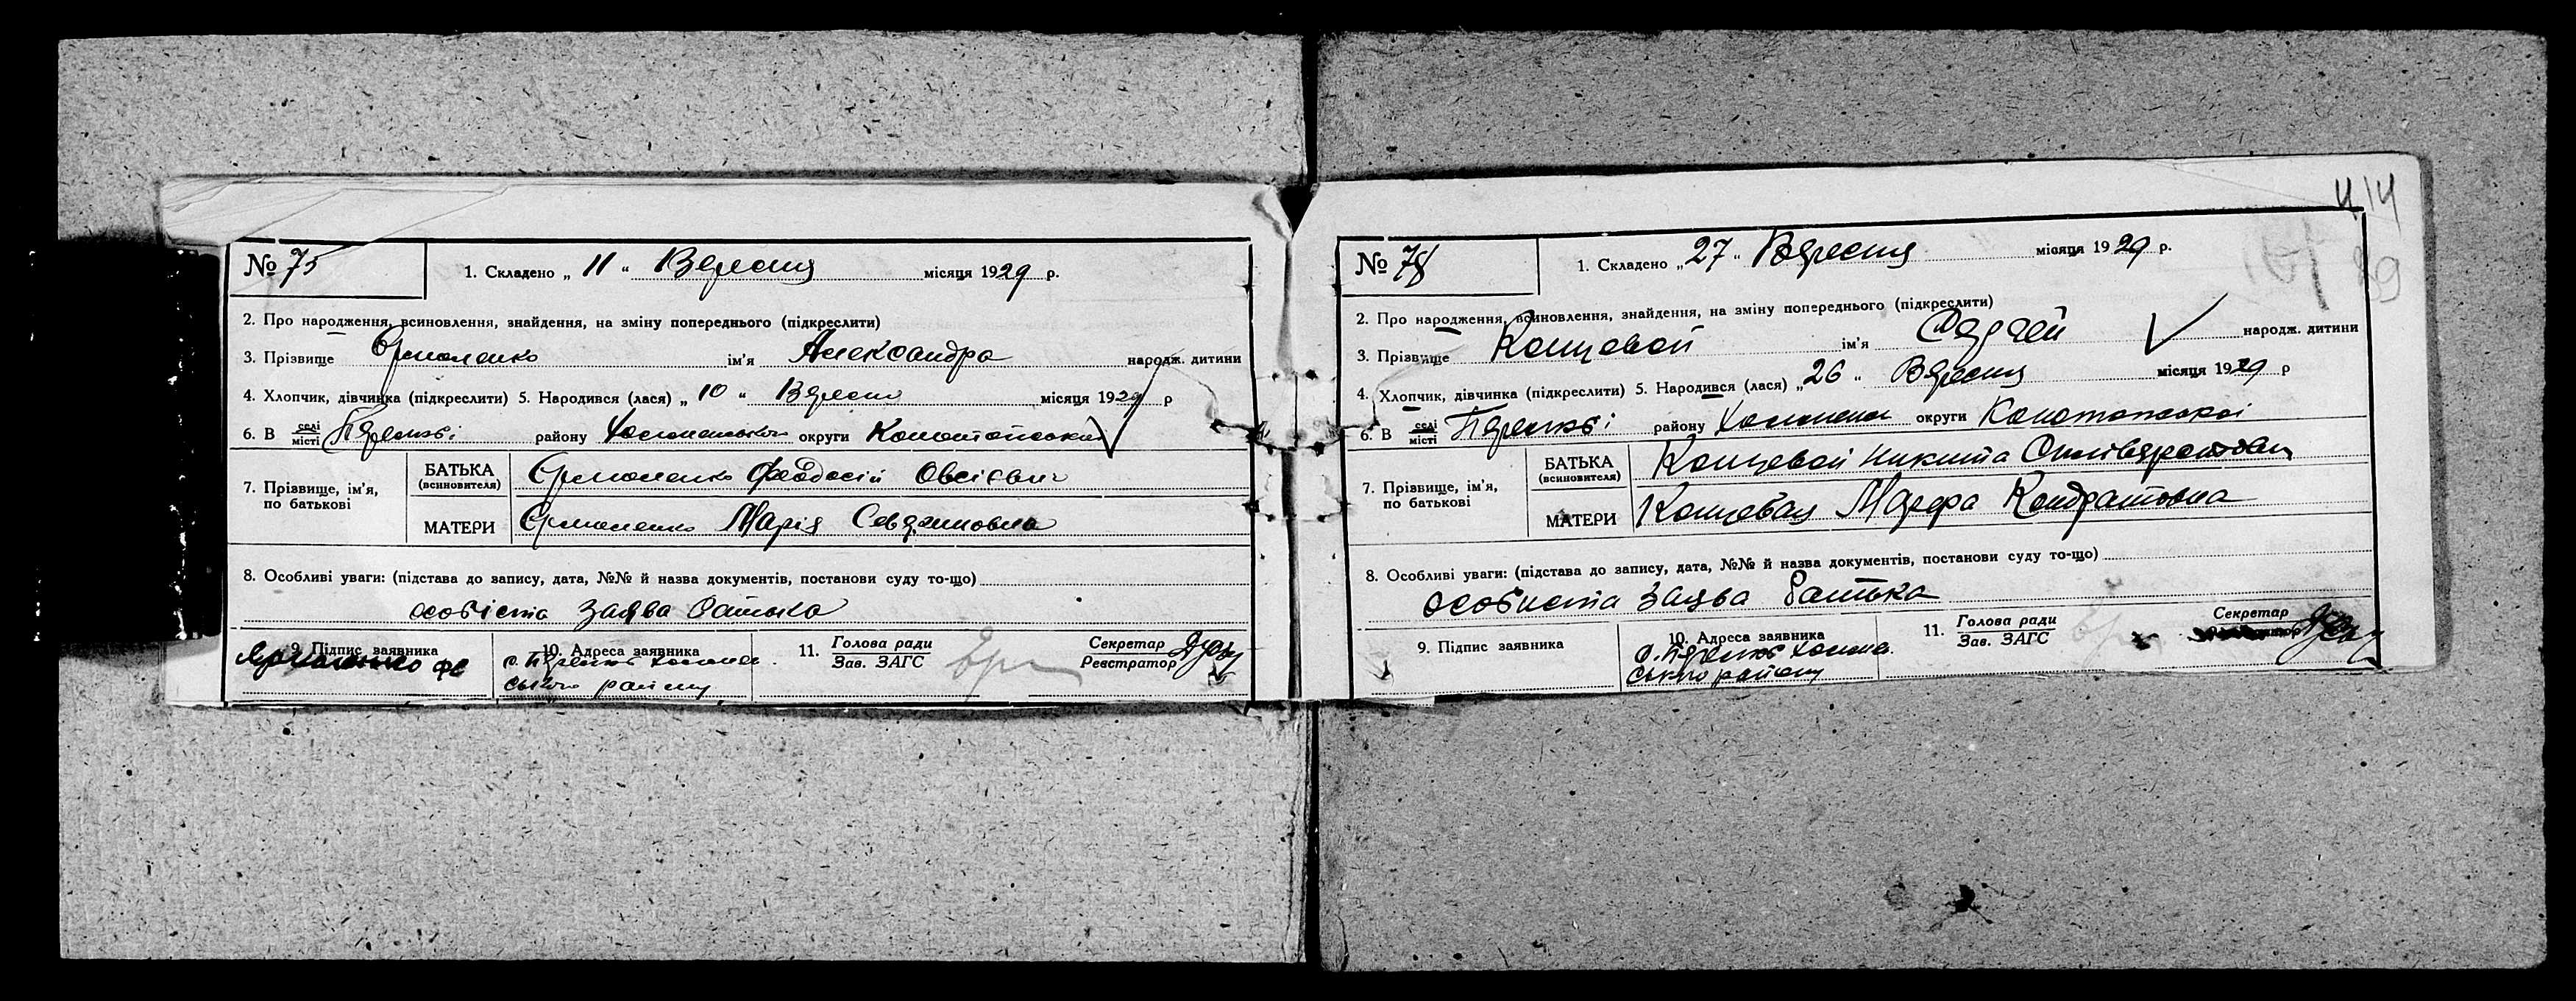 № 75
1. Складено „ 11 “ Вересня місяця 1929 р.
2. Про народження, всиновлення, знайдення, на зміну попереднього (підкреслити)
3. Прізвище Єрмоленко ім'я Александра народж. дитини
4. Хлопчик, дівчинка (підкреслити) 5. Народився (лася) „ 10 “ Вересня місяця 1929 р
6. В селі місті району округи Конотопської
7. Прізвище, ім'я, по батькові
БАТЬКА (всиновителя) Єрмоленко Феодосій Овсієвич
МАТЕРИ Єрмоленко Марія
8. Особливі уваги: (підстава до запису, дата, №№ й назва документів, постанови суду то-що)
особіста заява батька
9. Підпис заявника
10. Адреса заявника
11. Голова ради
Зав. ЗАГС
Секретар
Реєстратор
ського району
414
№ 78
1. Складено „ 27 “ Вересня місяця 1929 р.
2. Про народження, всиновлення, знайдення, на зміну попереднього (підкреслити)
3. Прізвище Концевой ім'я Сергей народж. дитини
4. Хлопчик, дівчинка (підкреслити) 5. Народився (лася) „ 26 “ Вересня місяця 1929 р
6. В селі місті району округи Конотопської
7. Прізвище, ім'я, по батькові
БАТЬКА (всиновителя) Концевой Никита
МАТЕРИ Концевая Марфа Кондратовна
8. Особливі уваги: (підстава до запису, дата, №№ й назва документів, постанови суду то-що)
особиста заява батька
9. Підпис заявника
10. Адреса заявника
11. Голова ради
Зав. ЗАГС
Секретар
ського району